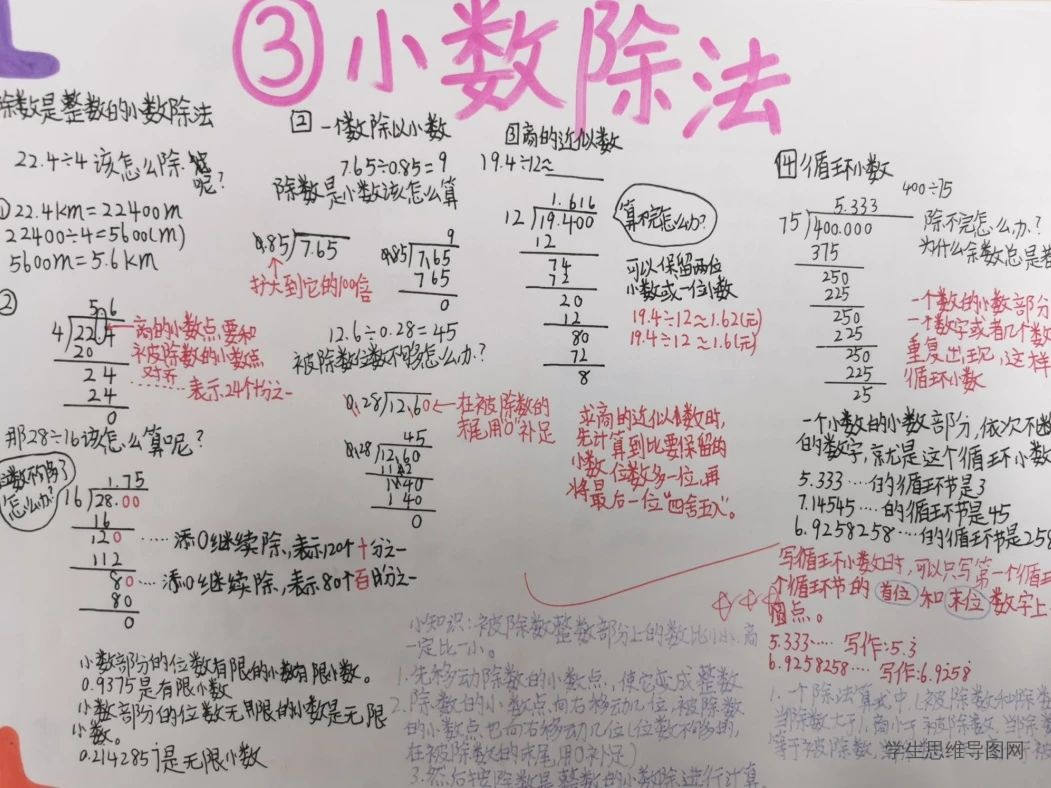 ③小数除法
除数是整数的小数除法
22.4÷4该怎么除呢?
①22.4km=22400m
22400÷4=5600(m)
5600m=5.6km
②
5 6
4 22.4
20
24
24
0
商的小数点要和
被除数的小数点
对齐
表示24个十分之一
那28÷16该怎么算呢?
位数不够了
怎么办?
1.75
16 28.00
16
120
112
80
80
0
添0继续除,表示120个十分之一
添0继续除,表示80个百分之一
小数部分的位数有限的小数有限小数。
0.9375是有限小数
小数部分的位数无限的小数是无限
小数。
是无限小数
2 一个数除以小数
7.65÷0.85=9
除数是小数该怎么算
0.85 7.65
扩大到它的100倍
9
0.85 7.65
765
0
12.6÷0.28=45
被除数位数不够怎么办?
0.28 12.60
在被除数的
末尾用"0"补足
45
0.28 12.60
112
140
140
0
3 商的近似数
19.4÷12≈
1.616
12 19.400
12
74
72
20
12
80
72
8
算不完怎么办?
可以保留两位
小数或一位小数
19.4÷12≈1.62(元)
19.4÷12≈1.6(元)
求商的近似数时,
先计算到比要保留的
小数位数多一位,再
将最后一位"四舍五入"。
4 循环小数
400÷75
5.333
75 400.000
375
250
225
250
225
250
225
25
除不完怎么办?
为什么余数总是
一个数的小数部分
一个数字或者几个数
重复出现,这样
循环小数
一个小数的小数部分,依次不断
的数字,就是这个循环小数
5.333····的循环节是3
7.14545····的循环节是45
6.9258258····的循环节是258
写循环小数时,可以只写第一个循环
个循环节的首位和末位数字上
圆点。
5.333···· 写作:5.3̇
6.9258258···· 写作:6.92̇58̇
小知识:被除数整数部分上的数比小,商
一定比一小。
1.先移动除数的小数点,使它变成整数
2.除数的小数点向右移动几位,被除数
的小数点也向右移动几位(位数不够的,
在被除数的末尾用0补足)
3.然后按除数是整数的小数除进行计算
1.一个除法算式中(被除数和除数
当除数大于1,商小于被除数,当除数
等于被除数,
学生思维导图网